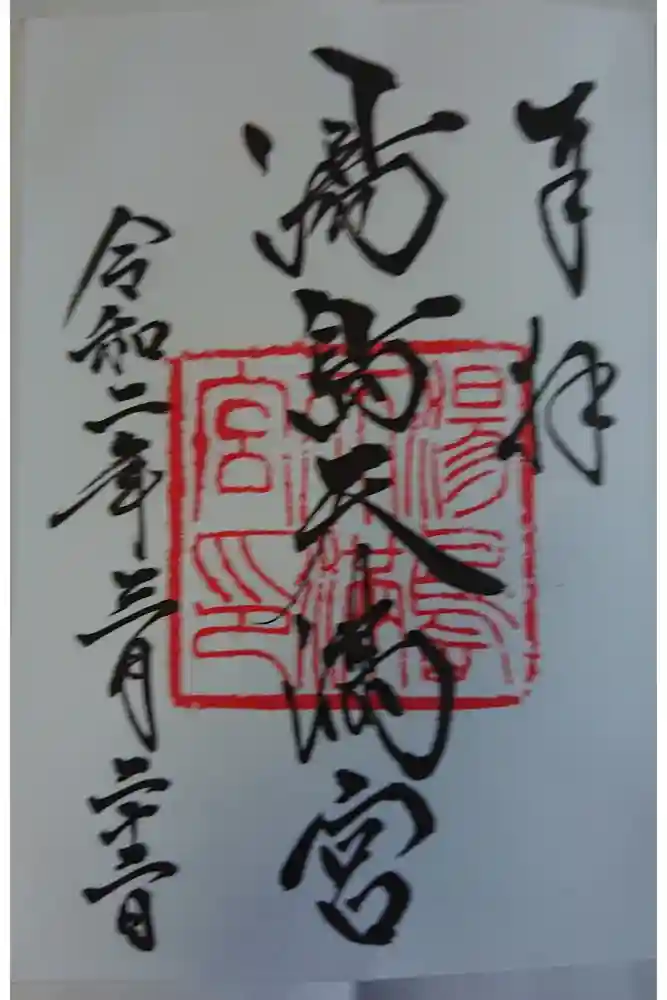 奉拝
湯島天満宮
令和二年三月二十二日
湯島
天満
宮印